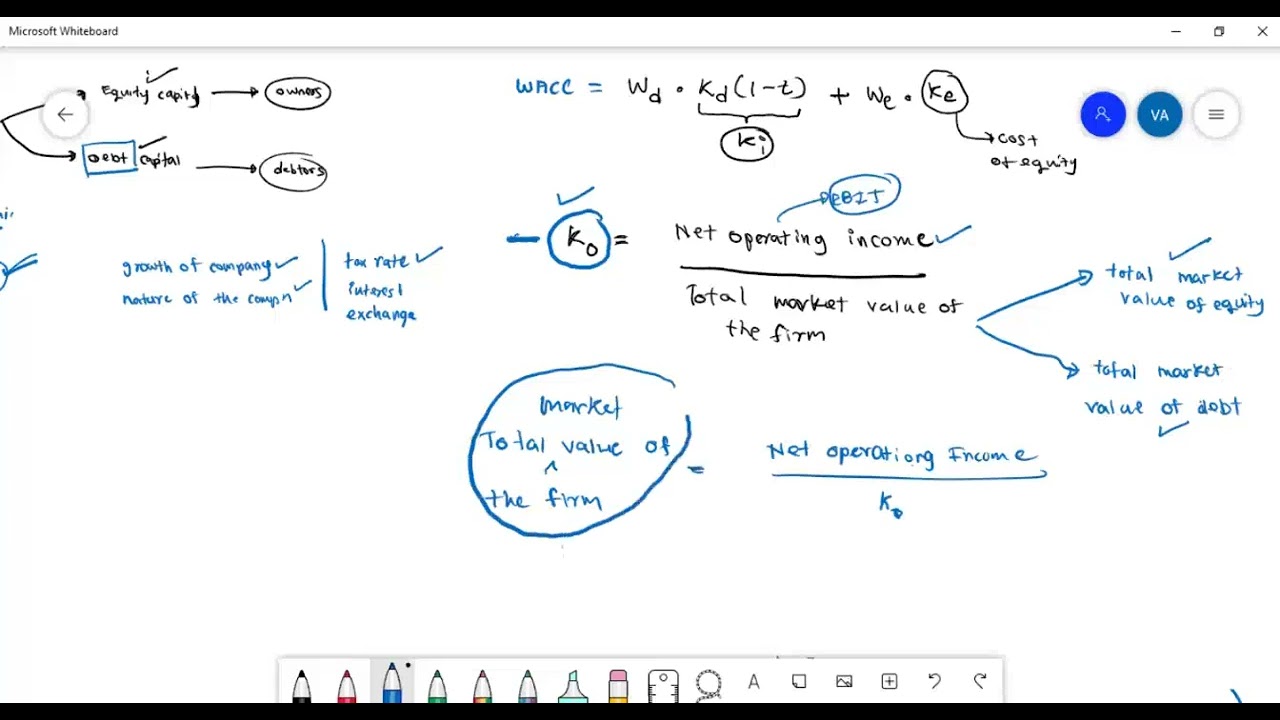 Microsoft Whiteboard
Equity capity
owners
Debt capital
debtors
WACC = Wd . Kd(1-t) + We . Ke
Ki
cost
of equity
VA
EBIT
K0 = Net operating income
Total market value of
the firm
growth of company
nature of the compn
tax rate
interest
exchange
total market
value of equity
total market
value of debt
market
Total value of
^
the firm
= Net operationg Income
K0
A